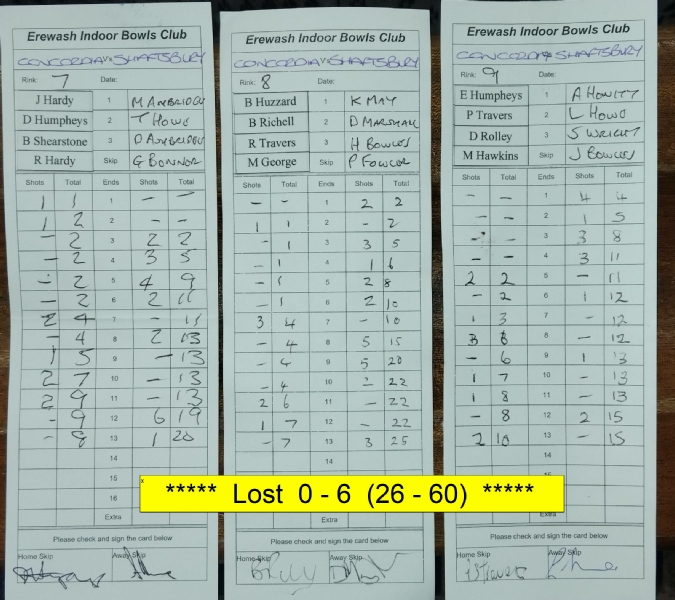 Erewash Indoor Bowls Club
CONCORDIA vs SHAFTSBURY
Rink: 7 Date:
J Hardy 1 M ANBRIDGE
D Humpheys 2 T HOWD
B Shearstone 3 D ANBRIDGE
R Hardy Skip G BONNOR
Shots Total Ends Shots Total
1 1 1 – –
1 2 2 – –
– 2 3 2 2
– 2 4 3 5
– 2 5 4 9
– 2 6 2 11
2 4 7 – 11
– 4 8 2 13
1 5 9 – 13
2 7 10 – 13
2 9 11 – 13
– 9 12 6 19
– 9 13 1 20
14
15
16
Extra
Please check and sign the card below
Home Skip Away Skip
Erewash Indoor Bowls Club
CONCORDIA vs SHAFTSBURY
Rink: 8 Date:
B Huzzard 1 K MAY
B Richell 2 D MARSHALL
R Travers 3 H BOWLES
M George Skip P FOWLER
Shots Total Ends Shots Total
– – 1 2 2
1 1 2 – 2
– 1 3 3 5
– 1 4 1 6
– 1 5 2 8
– 1 6 2 10
3 4 7 – 10
– 4 8 5 15
– 4 9 5 20
– 4 10 2 22
2 6 11 – 22
1 7 12 – 22
– 7 13 3 25
14
Extra
Please check and sign the card below
Home Skip Away Skip
Erewash Indoor Bowls Club
CONCORDIA vs SHAFTSBURY
Rink: 9 Date:
E Humpheys 1 A HOWITT
P Travers 2 L HOWD
D Rolley 3 S WRIGHT
M Hawkins Skip J BOWLES
Shots Total Ends Shots Total
– – 1 4 4
– – 2 1 5
– – 3 3 8
– – 4 3 11
2 2 5 – 11
– 2 6 1 12
1 3 7 – 12
3 6 8 – 12
– 6 9 1 13
1 7 10 – 13
1 8 11 – 13
– 8 12 2 15
2 10 13 – 15
14
15
Extra
Please check and sign the card below
Home Skip Away Skip
***** Lost 0 - 6 (26 - 60) *****